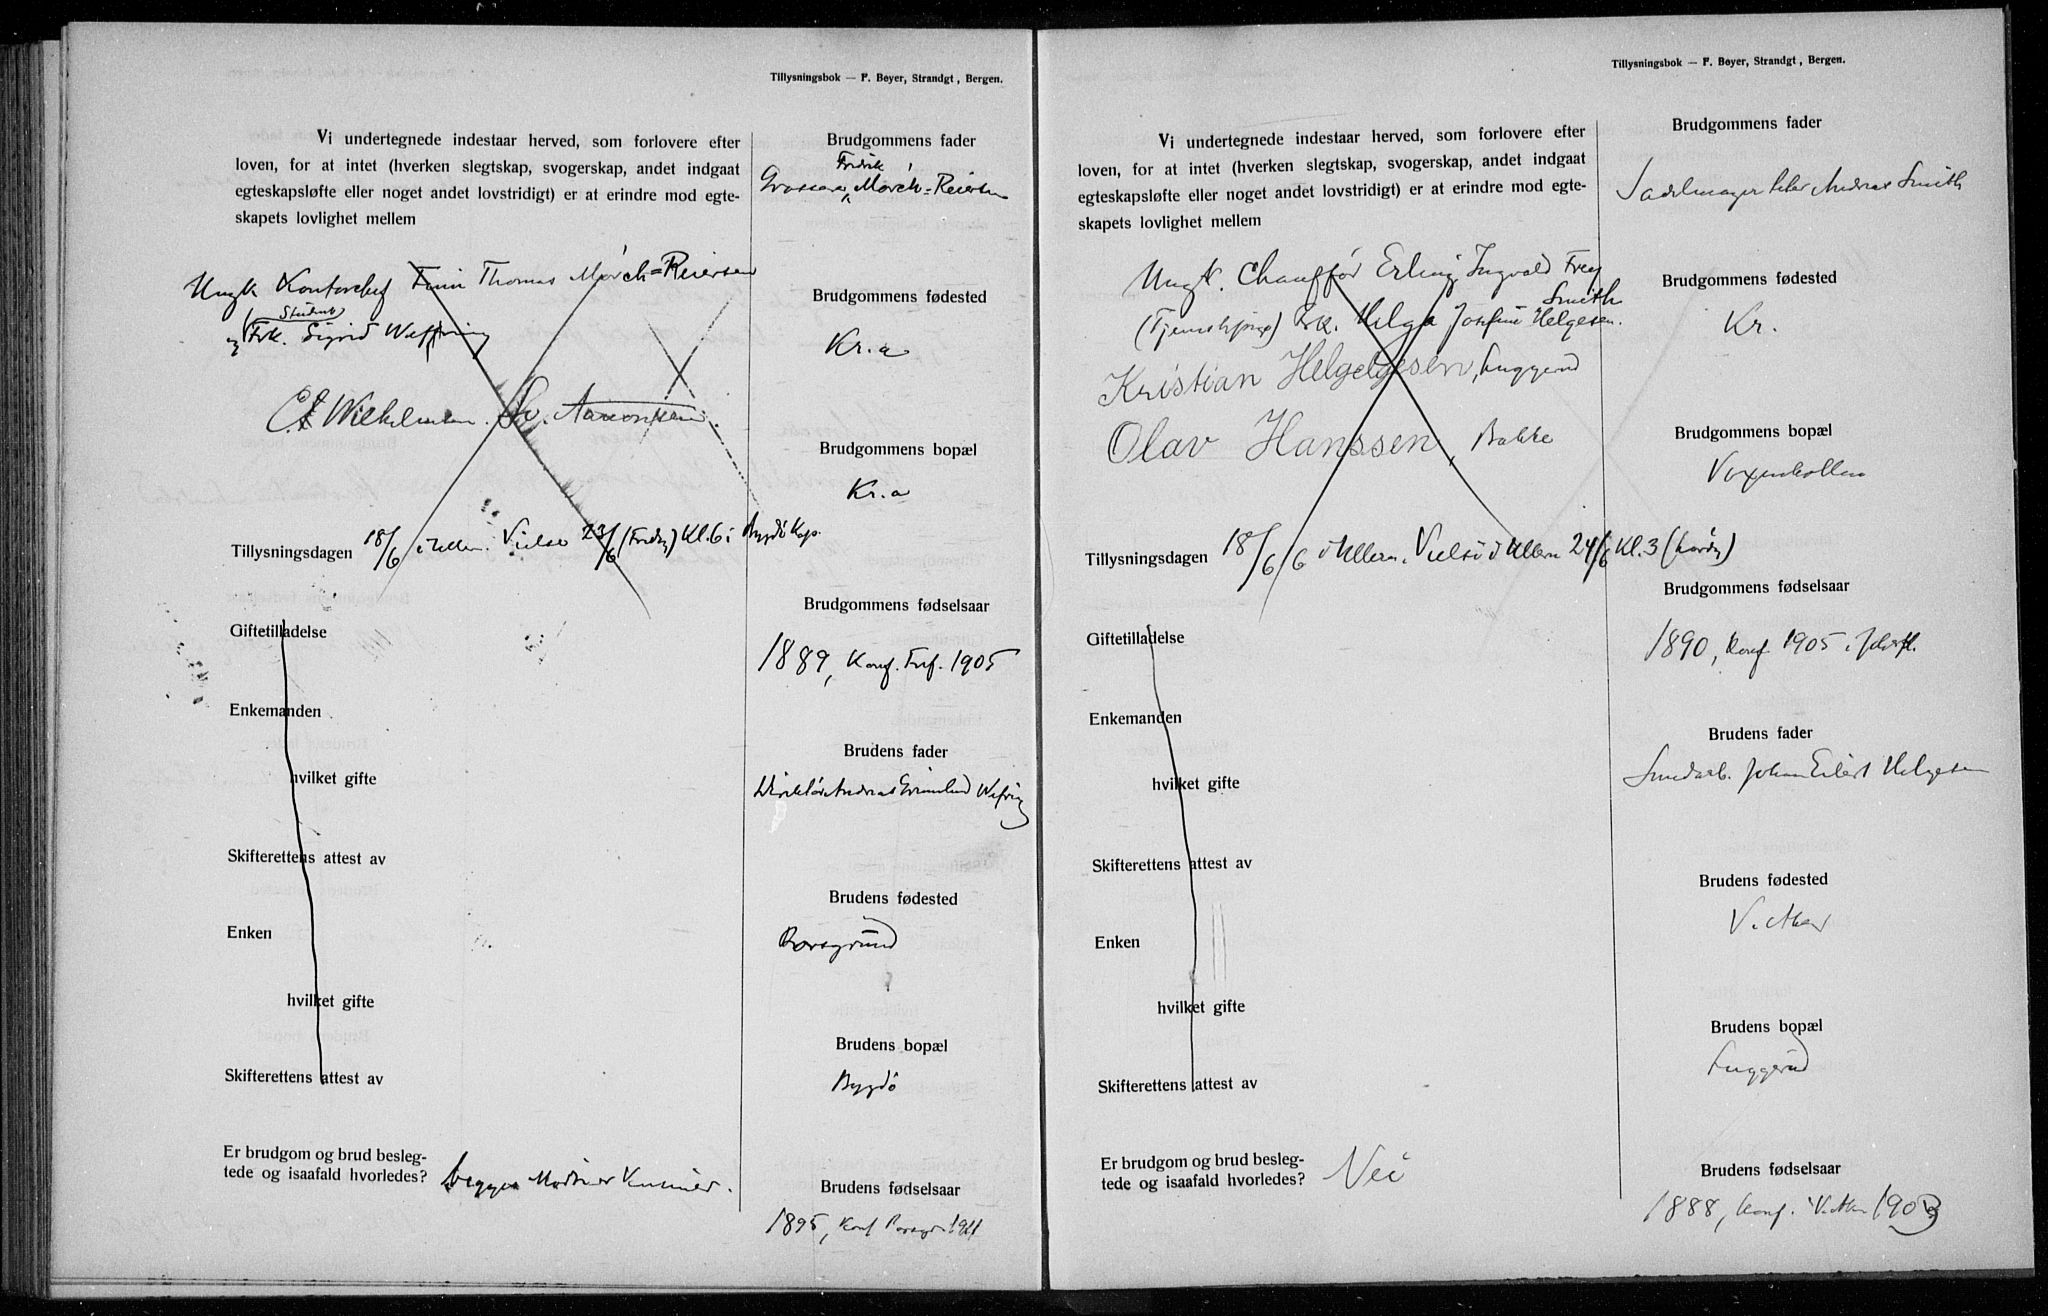 Tillysningsbok — F. Beyer, Strandgt, Bergen.
Vi undertegnede indestaar herved, som forlovere efter
loven, for at intet (hverken slegtskap, svogerskap, andet indgaat
egteskapsløfte eller noget andet lovstridigt) er at erindre mod egte-
skapets lovlighet mellem
Ungk Kontorchef Finn Thomas Mörch=Reiersen
(Student)
og Frk. Sigrid Wefring
Wilhelmsen. Aamonsen.
Tillysningsdagen 18/6 i Ullern. Vielse 23/6 (Fredag) Kl. 6 i Bygdö Kap.
Giftetilladelse
Enkemanden
hvilket gifte
Skifterettens attest av
Enken
hvilket gifte
Skifterettens attest av
Er brudgom og brud besleg-
tede og isaafald hvorledes? begges Mödre er Kusiner.
Brudgommens fader
Fredrik
Grosserer Mörch-Reiersen
Brudgommens fødested
Kr.a
Brudgommens bopæl
Kr.a
Brudgommens fødselsaar
1889, Konf. Frf. 1905
Brudens fader
Direktör Andreas Grimelund Wefring
Brudens fødested
Porsgrund
Brudens bopæl
Bygdö
Brudens fødselsaar
1895, Konf Porsgr. 1911
Tillysningsbok — F. Beyer, Strandgt, Bergen.
Vi undertegnede indestaar herved, som forlovere efter
loven, for at intet (hverken slegtskap, svogerskap, andet indgaat
egteskapsløfte eller noget andet lovstridigt) er at erindre mod egte-
skapets lovlighet mellem
Ungk. Chauffør Erling Ingvald Frey
Smith
(Tjenestepige) Frk. Helga Josefine Helgesen.
Kristian Helgelgesen, Luggerud
Olav Hanssen, Bakke
Tillysningsdagen 18/6 i Ullern. Vielse i Ullern 24/6 Kl. 3 (Lördag)
Giftetilladelse
Enkemanden
hvilket gifte
Skifterettens attest av
Enken
hvilket gifte
Skifterettens attest av
Er brudgom og brud besleg-
tede og isaafald hvorledes? Nei
Brudgommens fader
Sadelmager Peter Andreas Smith
Brudgommens fødested
Kr.
Brudgommens bopæl
Voxenkollen
Brudgommens fødselsaar
1890, Konf 1905 i
Brudens fader
Johan Eilert Helgesen
Brudens fødested
V. Aker
Brudens bopæl
Luggerud
Brudens fødselsaar
1888, Konf. i V. Aker 1903